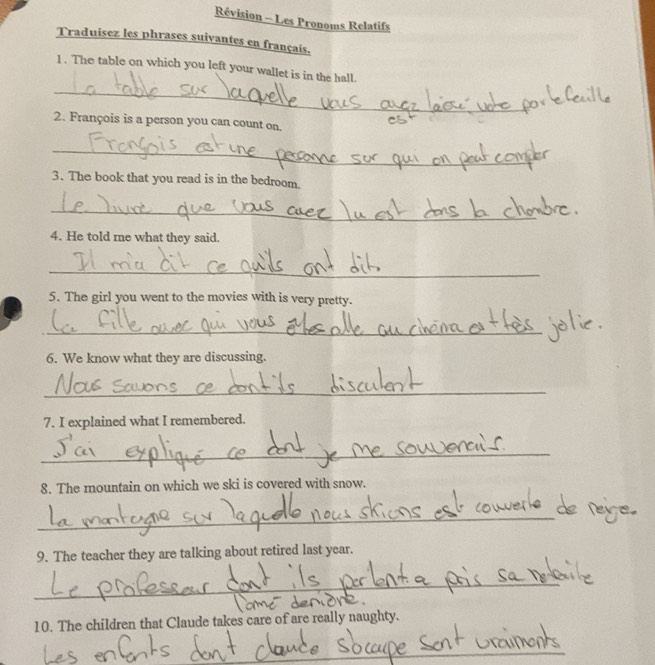 Révision – Les Pronoms Relatifs
Traduisez les phrases suivantes en français.
1. The table on which you left your wallet is in the hall.
La table sur laquelle vous avez laissé votre portefeuille
est
2. François is a person you can count on.
François est une personne sur qui on peut compter
3. The book that you read is in the bedroom.
Le livre que vous avez lu est dans la chambre.
4. He told me what they said.
Il m'a dit ce qu'ils ont dit.
5. The girl you went to the movies with is very pretty.
La fille avec qui vous êtes allé au cinéma est très jolie.
6. We know what they are discussing.
Nous savons ce dont ils discutent
7. I explained what I remembered.
J'ai expliqué ce dont je me souvenais.
8. The mountain on which we ski is covered with snow.
La montagne sur laquelle nous skions est couverte de neige.
9. The teacher they are talking about retired last year.
Le professeur dont ils parlent a pris sa retraite
l'anné dernière.
10. The children that Claude takes care of are really naughty.
Les enfants dont Claude s'occupe sont vraiments